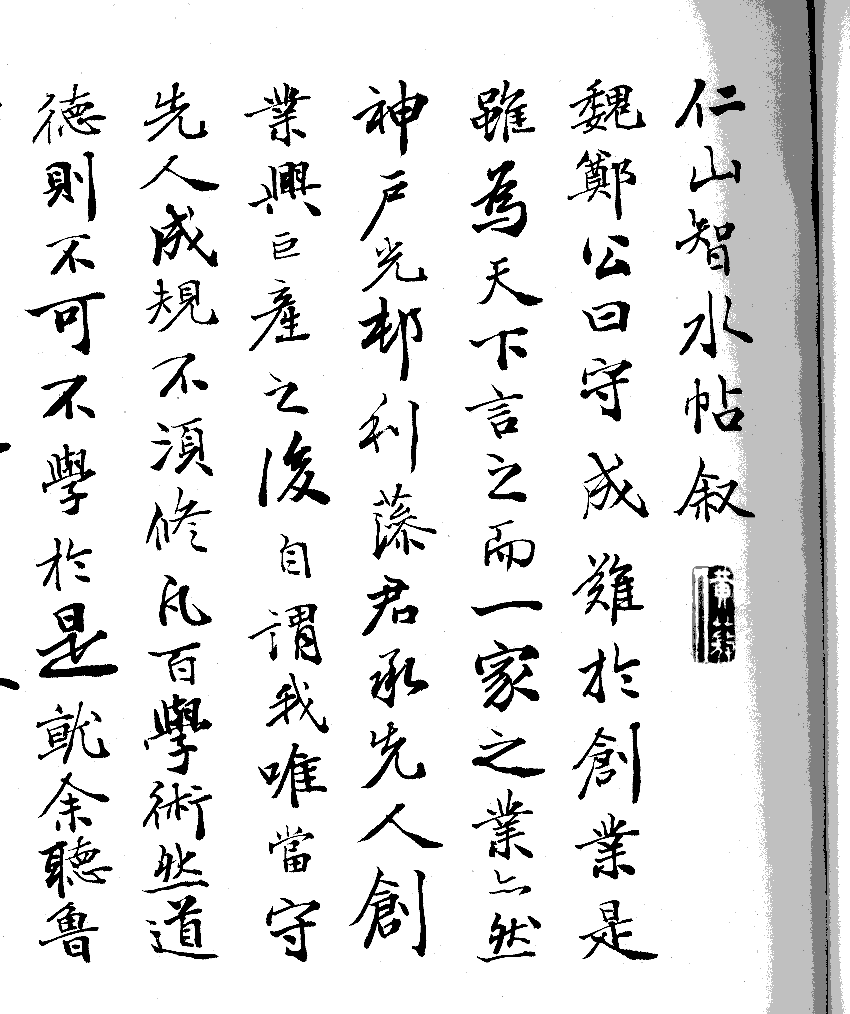 仁山智水帖叙
魏鄭公曰守成難於創業是
雖為天下言之而一家之業亦然
神戸光邨利藻君承先人創
業興巨產之後自謂我唯當守
先人成規不須修凡百學術然道
德則不可不學於是就余聽魯